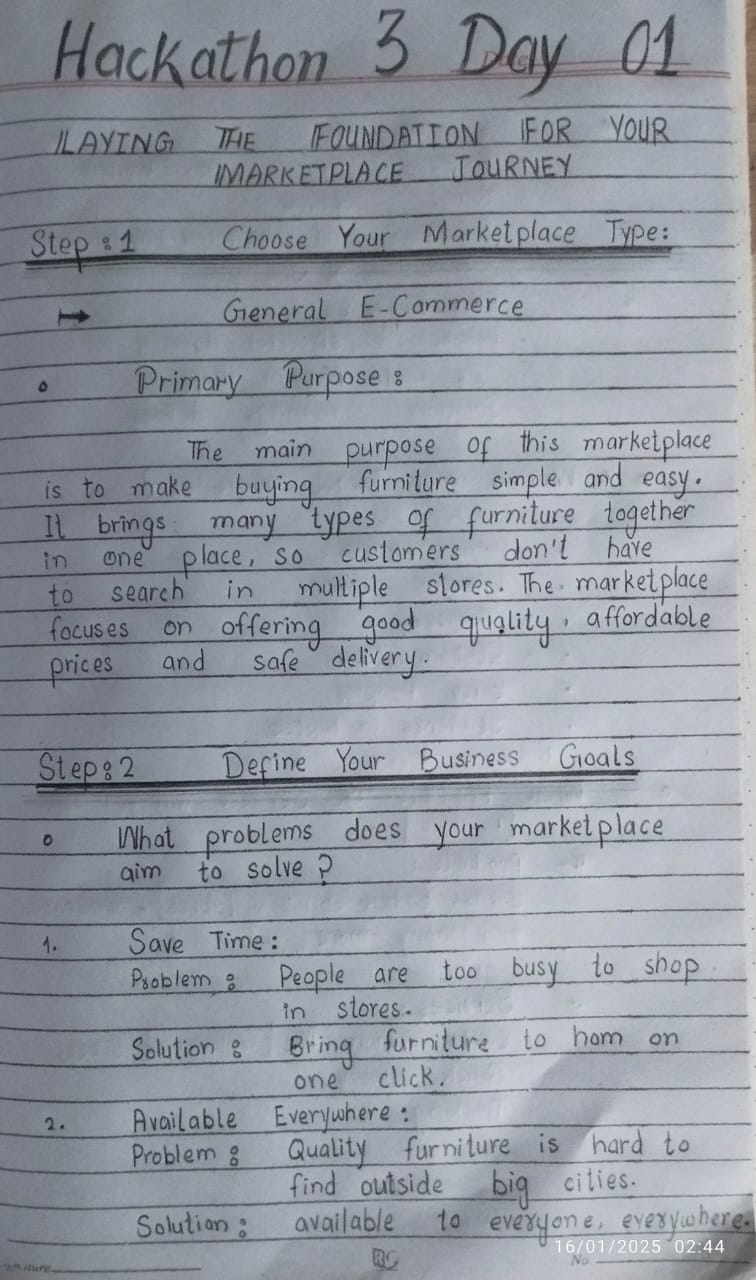 Hackathon 3 Day 01
LAYING THE FOUNDATION FOR YOUR
MARKETPLACE JOURNEY
Step:1 Choose Your Marketplace Type:
General E-Commerce
Primary Purpose:
The main purpose of this marketplace
is to make buying furniture simple and easy.
It brings many types of furniture together
in one place, so customers don't have
to search in multiple stores. The marketplace
focuses on offering good quality, affordable
prices and safe delivery.
Step:2 Define Your Business Goals
What problems does your marketplace
aim to solve?
1. Save Time:
Problem: People are too busy to shop
in stores.
Solution: Bring furniture to hom on
one click.
2. Available Everywhere:
Problem: Quality furniture is hard to
find outside big cities.
Solution: available to everyone, everywhere.
16/01/2025 02:44
No.